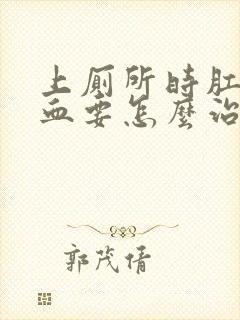 上厕所時肛
血要怎麼治
郭茂倩